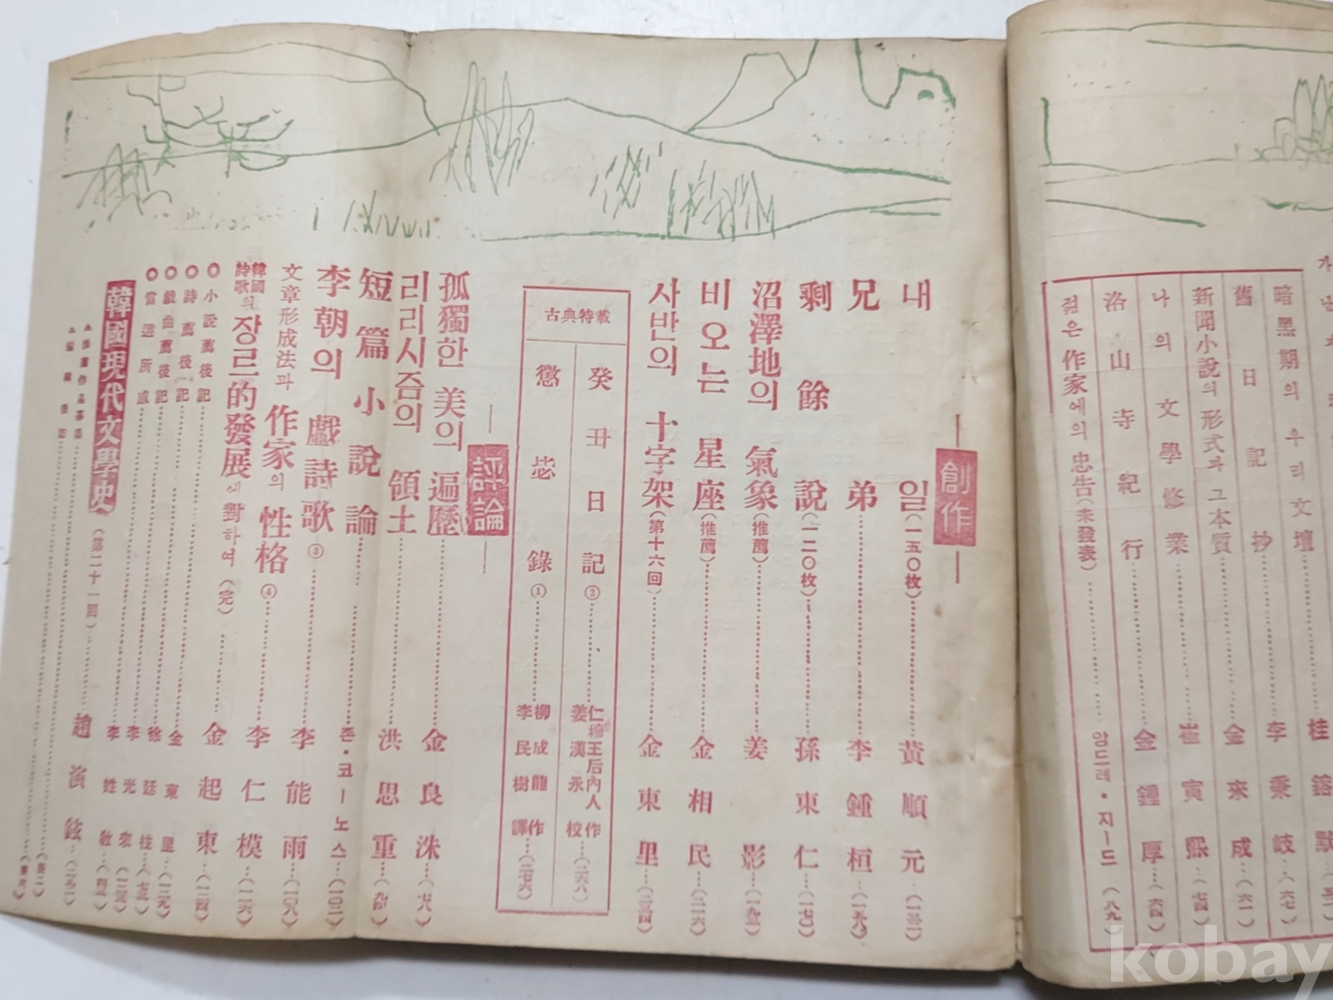 桂鎔默
暗黑期의 우리 文壇 李秉岐 (六七)
舊日記抄 金來成 (六一)
新聞小說의 形式과 그 本質 崔寅熙 (七四)
나의 文學修業
洛山寺紀行 金鍾厚 (六四)
젊은 作家에의 忠告(未發表) 앙드레・지ー드 (八九)
創作
내일(一五〇枚) 黃順元
兄弟 李鍾桓
剩餘說(一二〇枚) 孫東仁
沼澤地의 氣象(推薦) 姜影
비오는 星座(推薦) 金相民 (二一六)
사반의 十字架(第十六回) 金東里
古典特載
癸丑日記② 仁穆王后內人作 姜漢永校 (二六八)
懲毖錄① 柳成龍作 李民樹譯 (二七六)
評論
孤獨한 美의 遍歷 金良洙
리리시즘의 領土 洪思重
短篇小說論 존・코ー노스 (一〇二)
李朝의 戱詩歌③ 李能雨 (一〇八)
文章形成法과 作家의 性格④ 李仁模 (一一六)
韓國詩歌의 장르的發展에 對하여(完) 金起東
小說薦後記 金東里
詩薦後記 徐廷柱
戱曲薦後記 李光來
當選所感 李姓敎
韓國現代文學史(第二十一回) 趙演鉉
kobay